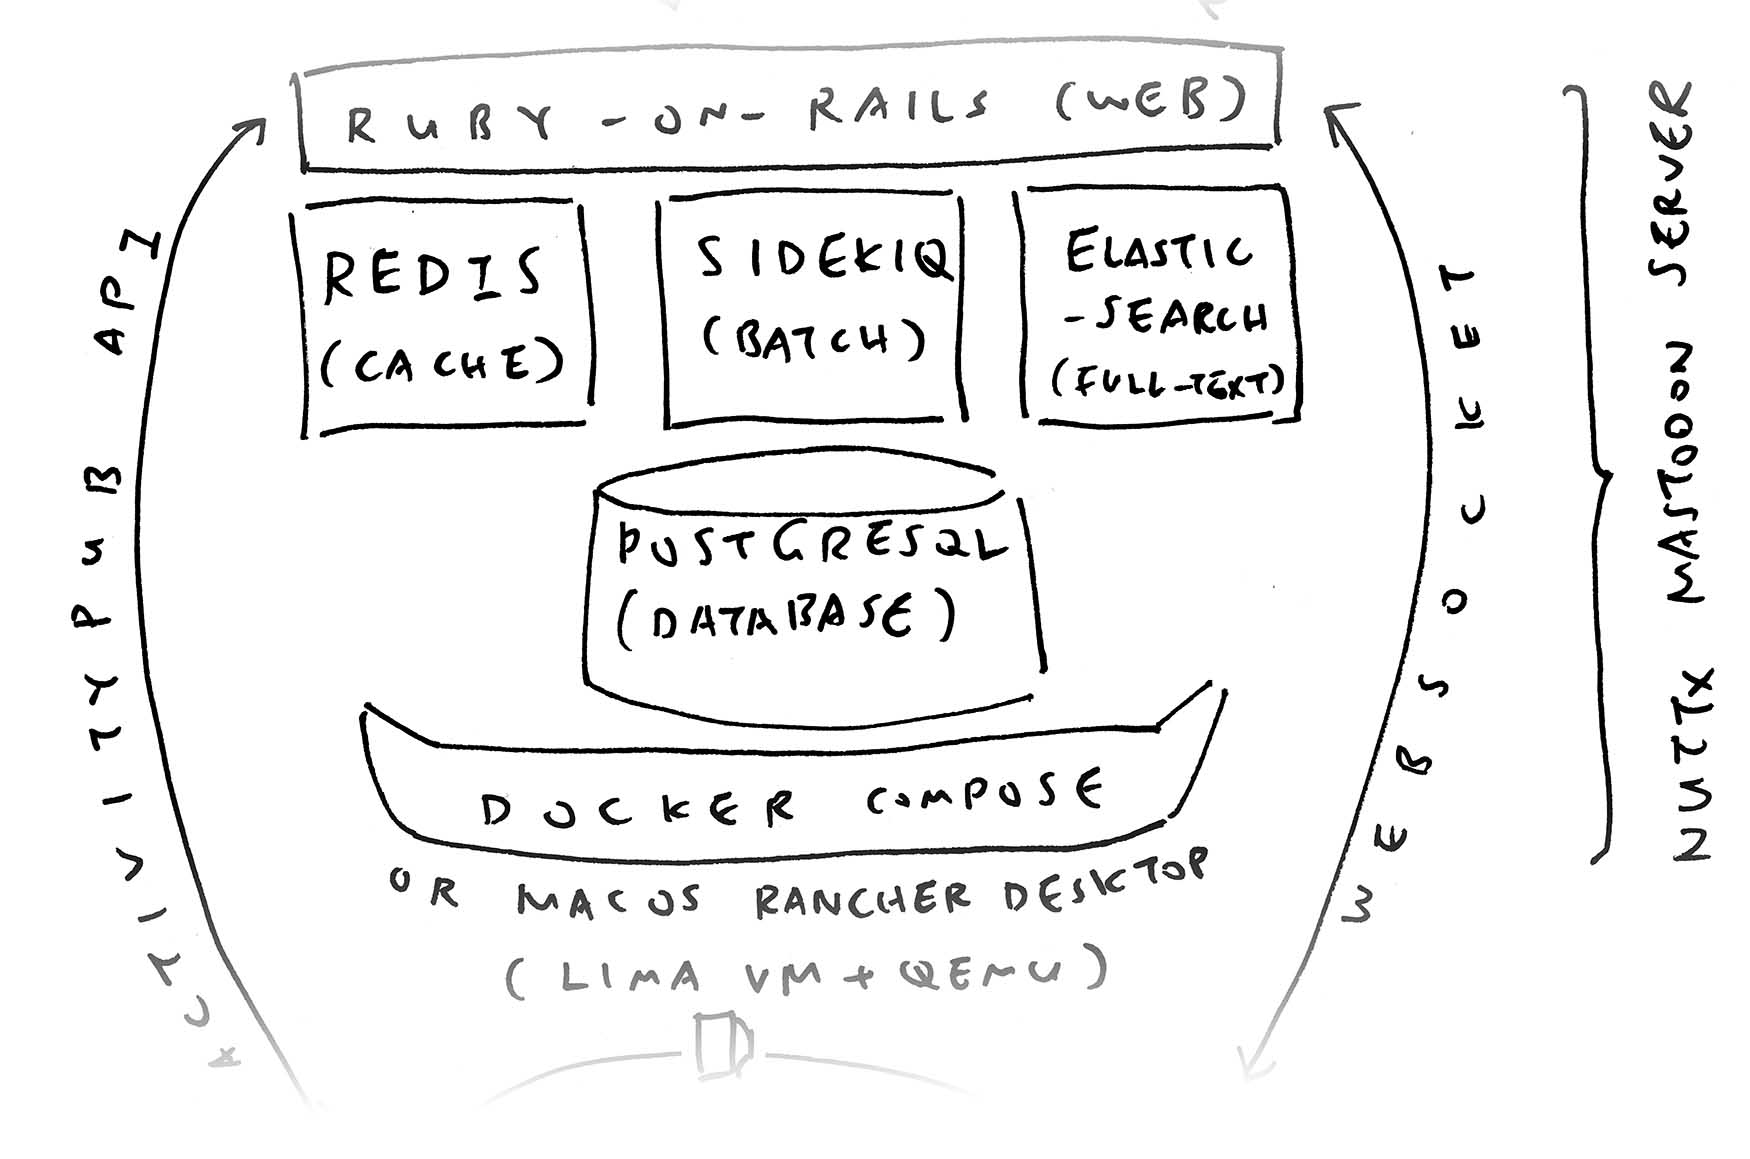 RUBY-ON-RAILS (WEB)
REDIS
(CACHE)
SIDEKIQ
(BATCH)
ELASTIC
-SEARCH
(FULL-TEXT)
POSTGRESQL
(DATABASE)
DOCKER COMPOSE
OR MACOS RANCHER DESKTOP
(LIMA VM + QEMU)
ACTIVITYPUB API
WEBSOCKET
NUTTX MASTODON SERVER